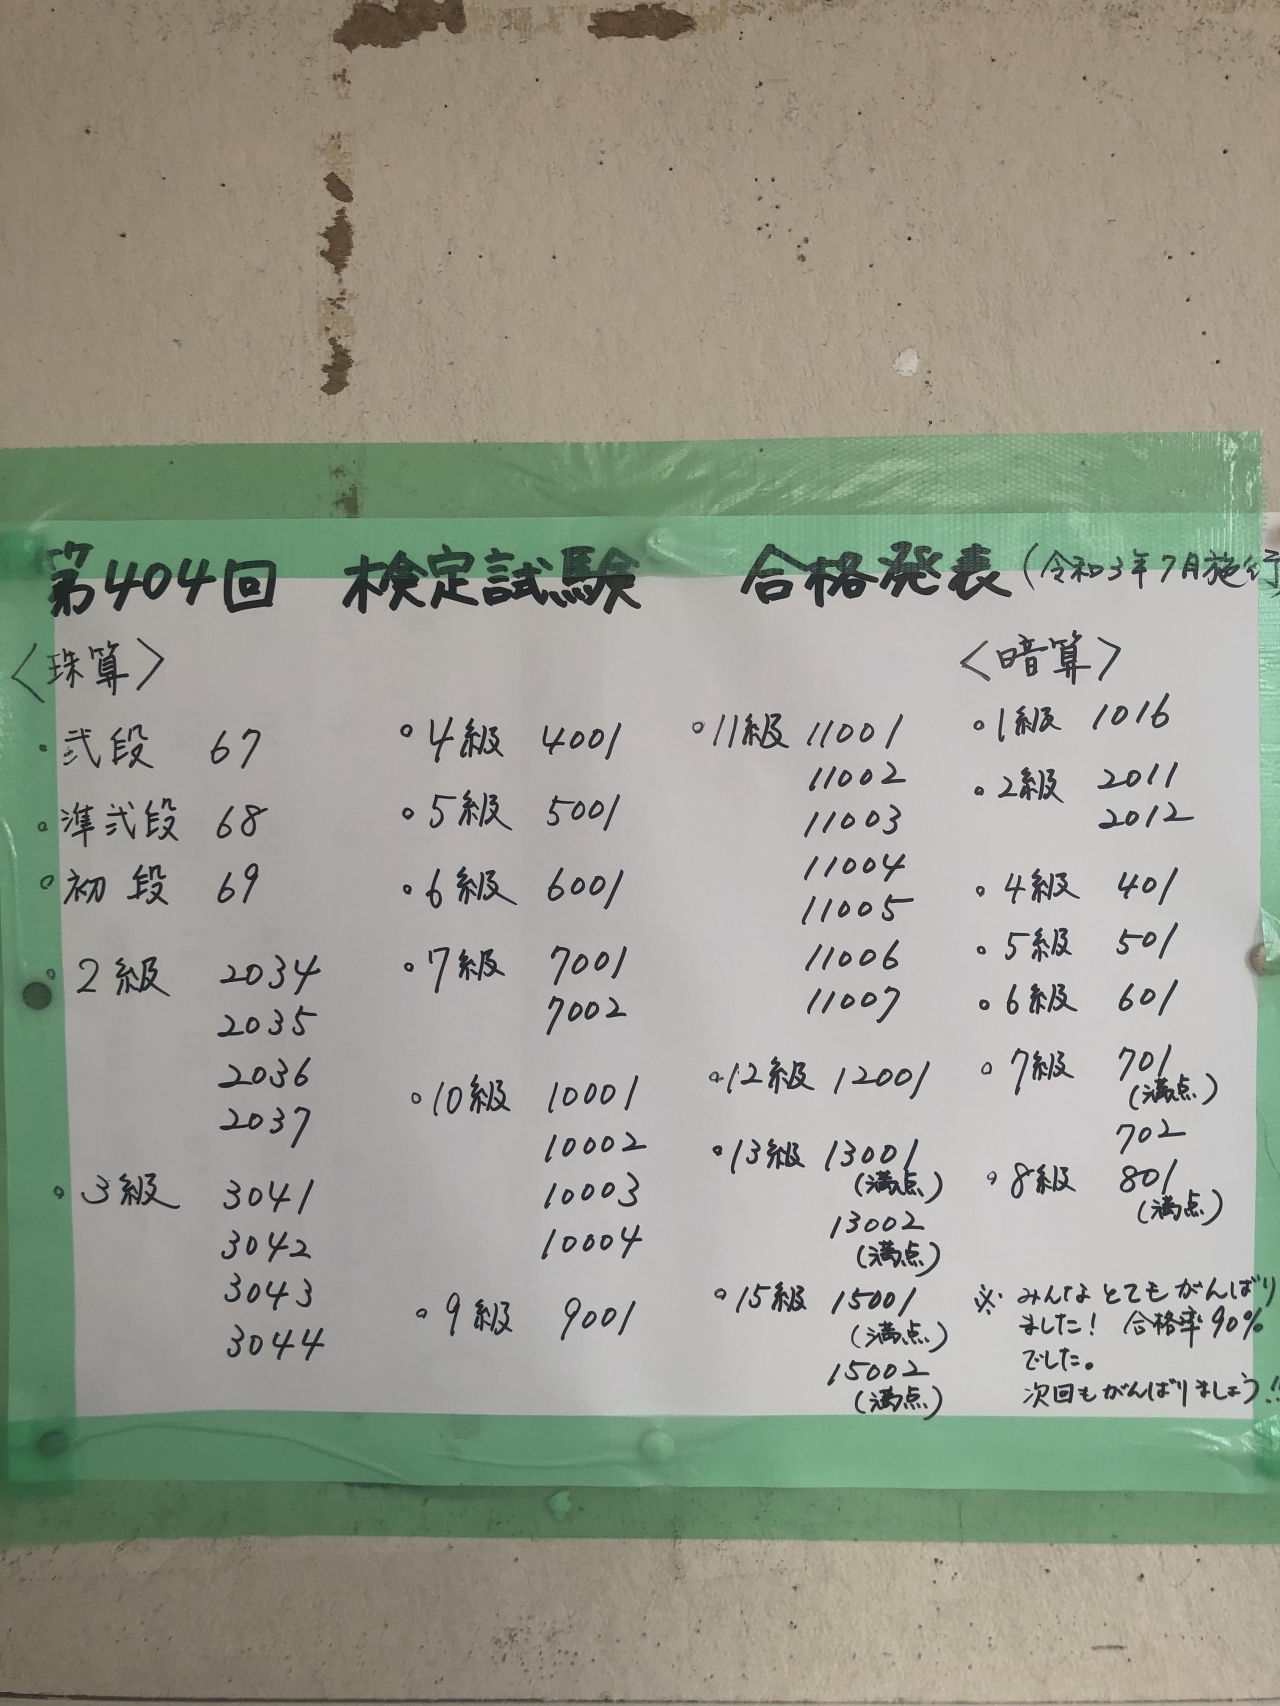 第404回 検定試験 合格発表 (令和3年7月施行
〈珠算〉
・弐段 67
・準弐段 68
・初段 69
・2級 2034
2035
2036
2037
・3級 3041
3042
3043
3044
・4級 4001
・5級 5001
・6級 6001
・7級 7001
7002
・10級 10001
10002
10003
10004
・9級 9001
・11級 11001
11002
11003
11004
11005
11006
11007
・12級 12001
・13級 13001
(満点)
13002
(満点)
・15級 15001
(満点)
15002
(満点)
〈暗算〉
・1級 1016
・2級 2011
2012
・4級 401
・5級 501
・6級 601
・7級 701
(満点)
702
・8級 801
(満点)
※ みんなとてもがんばり
ました! 合格率90%
でした。
次回もがんばりましょう!!